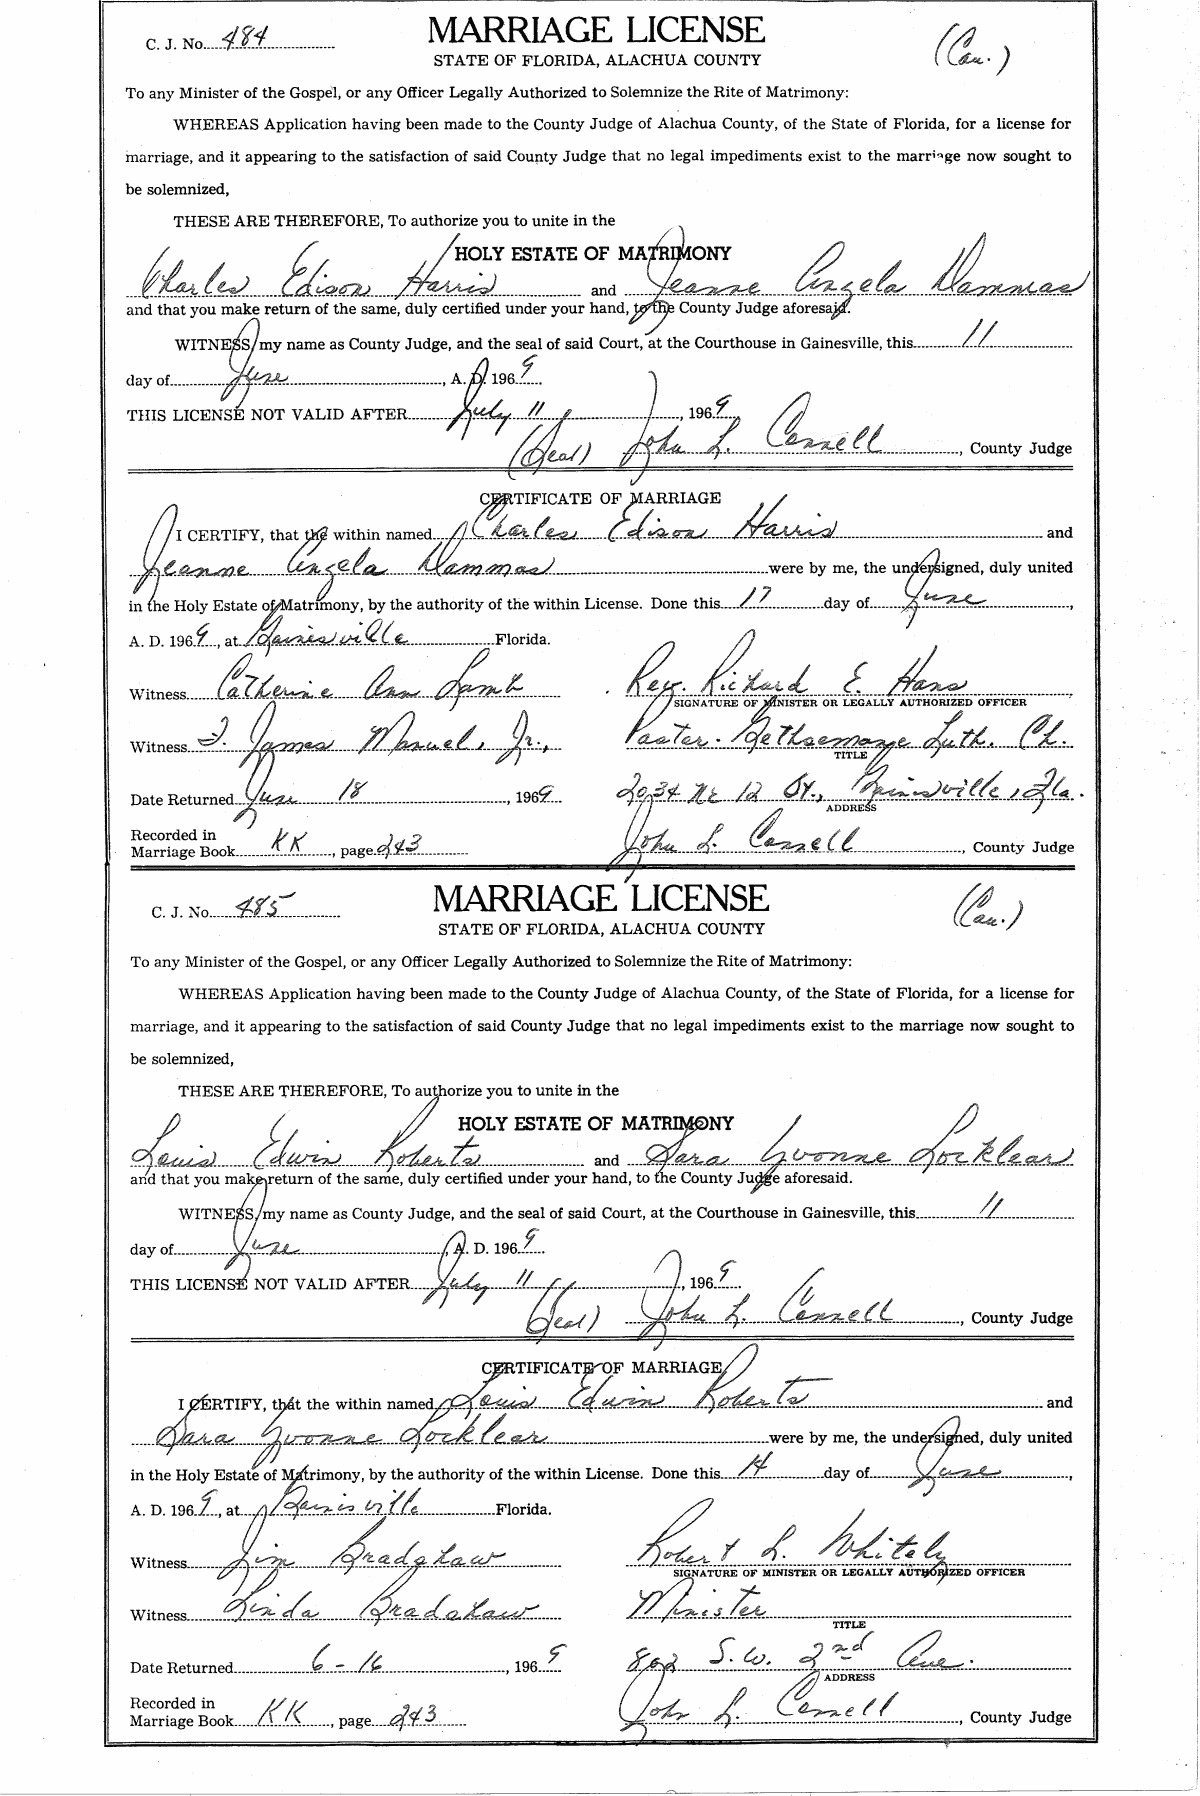 C. J. No. 484
MARRIAGE LICENSE
(Cau.)
STATE OF FLORIDA, ALACHUA COUNTY
To any Minister of the Gospel, or any Officer Legally Authorized to Solemnize the Rite of Matrimony:
WHEREAS Application having been made to the County Judge of Alachua County, of the State of Florida, for a license for
marriage, and it appearing to the satisfaction of said County Judge that no legal impediments exist to the marriage now sought to
be solemnized,
THESE ARE THEREFORE, To authorize you to unite in the
HOLY ESTATE OF MATRIMONY
Charles Edison Harris and Jeanne Angela Dammas
and that you make return of the same, duly certified under your hand, to the County Judge aforesaid.
WITNESS, my name as County Judge, and the seal of said Court, at the Courthouse in Gainesville, this 11
day of June, A. D. 1969
THIS LICENSE NOT VALID AFTER July 11, 1969
(Seal) John L. Connell, County Judge
CERTIFICATE OF MARRIAGE
I CERTIFY, that the within named Charles Edison Harris and
Jeanne Angela Dammas were by me, the undersigned, duly united
in the Holy Estate of Matrimony, by the authority of the within License. Done this 17 day of June,
A. D. 1969, at Gainesville Florida.
Witness Catherine Ann Lamb Rev. Richard E. Hans
SIGNATURE OF MINISTER OR LEGALLY AUTHORIZED OFFICER
Witness F. James Manuel, Jr., Pastor - Gethsemane Luth. Ch.
TITLE
Date Returned June 18, 1969 2034 NE 12 St., Gainesville, Fla.
ADDRESS
Recorded in
Marriage Book KK, page 243 John L. Connell, County Judge
C. J. No. 485
MARRIAGE LICENSE
(Cau.)
STATE OF FLORIDA, ALACHUA COUNTY
To any Minister of the Gospel, or any Officer Legally Authorized to Solemnize the Rite of Matrimony:
WHEREAS Application having been made to the County Judge of Alachua County, of the State of Florida, for a license for
marriage, and it appearing to the satisfaction of said County Judge that no legal impediments exist to the marriage now sought to
be solemnized,
THESE ARE THEREFORE, To authorize you to unite in the
HOLY ESTATE OF MATRIMONY
Louis Edwin Roberts and Sara Yvonne Locklear
and that you make return of the same, duly certified under your hand, to the County Judge aforesaid.
WITNESS, my name as County Judge, and the seal of said Court, at the Courthouse in Gainesville, this 11
day of June, A. D. 1969
THIS LICENSE NOT VALID AFTER July 11, 1969
(Seal) John L. Connell, County Judge
CERTIFICATE OF MARRIAGE
I CERTIFY, that the within named Louis Edwin Roberts and
Sara Yvonne Locklear were by me, the undersigned, duly united
in the Holy Estate of Matrimony, by the authority of the within License. Done this 14 day of June,
A. D. 1969, at Gainesville Florida.
Witness Jim Bradshaw Robert L. Whitely
SIGNATURE OF MINISTER OR LEGALLY AUTHORIZED OFFICER
Witness Linda Bradshaw Minister
TITLE
Date Returned 6-16, 1969 802 S.W. 2nd Ave.
ADDRESS
Recorded in
Marriage Book KK, page 243 John L. Connell, County Judge